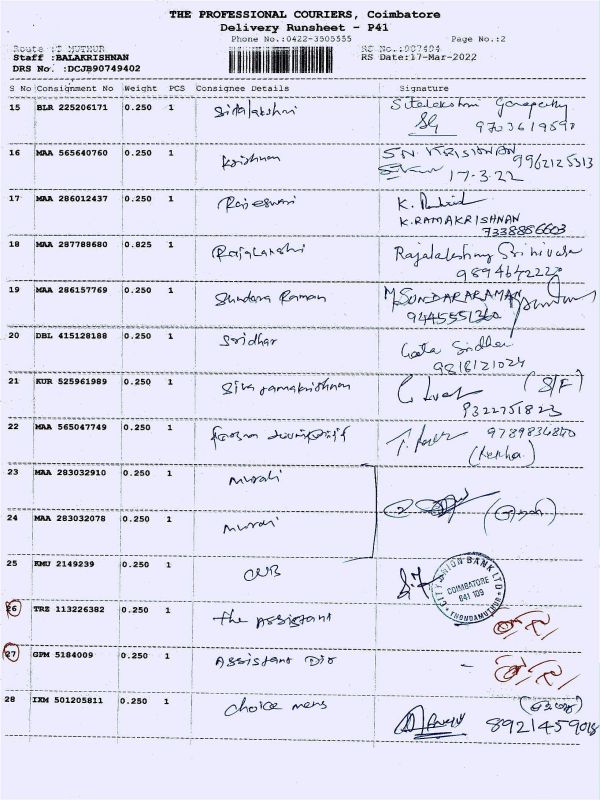 THE PROFESSIONAL COURIERS, Coimbatore
Delivery Runsheet - P41
Phone No.:0422-3505555 Page No.:2
Route :T MUTHUR RS No.:907494
Staff :BALAKRISHNAN RS Date:17-Mar-2022
DRS No. :DCJB90749402
S No Consignment No Weight PCS Consignee Details Signature
15 BLR 225206171 0.250 1 Sitalakshmi Sitalakshmi
16 MAA 565640760 0.250 1 Krishnan S.N. KRISHNAN 9962125313
17.3.22
17 MAA 286012437 0.250 1 Rajeswari K.
K.RAMAKRISHNAN
7338886603
18 MAA 287788680 0.825 1 Rajalakshmi Rajalakshmy Srinivasan
9894642220
19 MAA 286157769 0.250 1 Sundara Raman M.SUNDARARAMAN
9445551360
20 DBL 415128188 0.250 1 Sridhar Geeta Sridhar
9818121024
21 KUR 525961989 0.250 1 Siva ramakrishnan (S/F)
9322751823
22 MAA 565047749 0.250 1 9789834840
(Rekha)
23 MAA 283032910 0.250 1 Murali
24 MAA 283032078 0.250 1 Murali
25 KMU 2149239 0.250 1 CUB
CITY UNION BANK LTD
COIMBATORE
641 109
THONDAMUTHUR
26 TRZ 113226382 0.250 1 The Assistant
27 GPM 5184009 0.250 1 Assistant Dir
28 IXM 501205811 0.250 1 Choice mens 8921459018